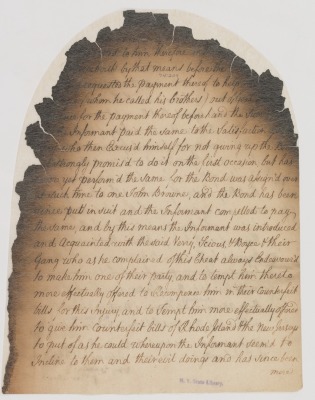 to him therefore
which by that means before the
requested the payment thereof to help
whom he called his brothers) out of
for the payment thereof before hand the
Informant paid the same to the Satisfaction
who then Excus'd himself for not giving up the Bond
promis'd to do it on the last occasion but has
yet perform'd the same for the Bond was assign'd over
which time to one John Brawner, and the Bond has been
since put in suit and the Informant compelled to pay
the same, and by this means the Informant was introduced
and Acquainted with the said Very, Scious, & Roper & their
Gang who as he complained of this Cheat always Endeavour'd
to make him one of their party, and to tempt him thereto
more effectually offered to recompence him in their Counterfeit
bills, for this Injury, and to Tempt him more effectually offered
to give him Counterfeit bills of Rhode Island & the New Jerseys
to put of as he could, whereupon the Informant seem'd to
Incline to them and their evil doings and has since been
more
N. Y. State Library